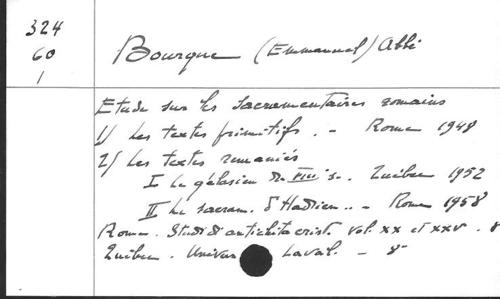 324
60
1
Bourque (Emmanuel) Abbé
Etude sur les sacramentaires romains
1) Les textes primitifs. - Rome 1948
2) Les textes remaniés
I Le gélasien du VIIIe s. Québec 1952
II Le sacram. d'Hadrien.. - Rome 1958
Rome. Studi di antichità crist. vol. XX et XXV. 8°
Québec. Univers Laval. - 8°